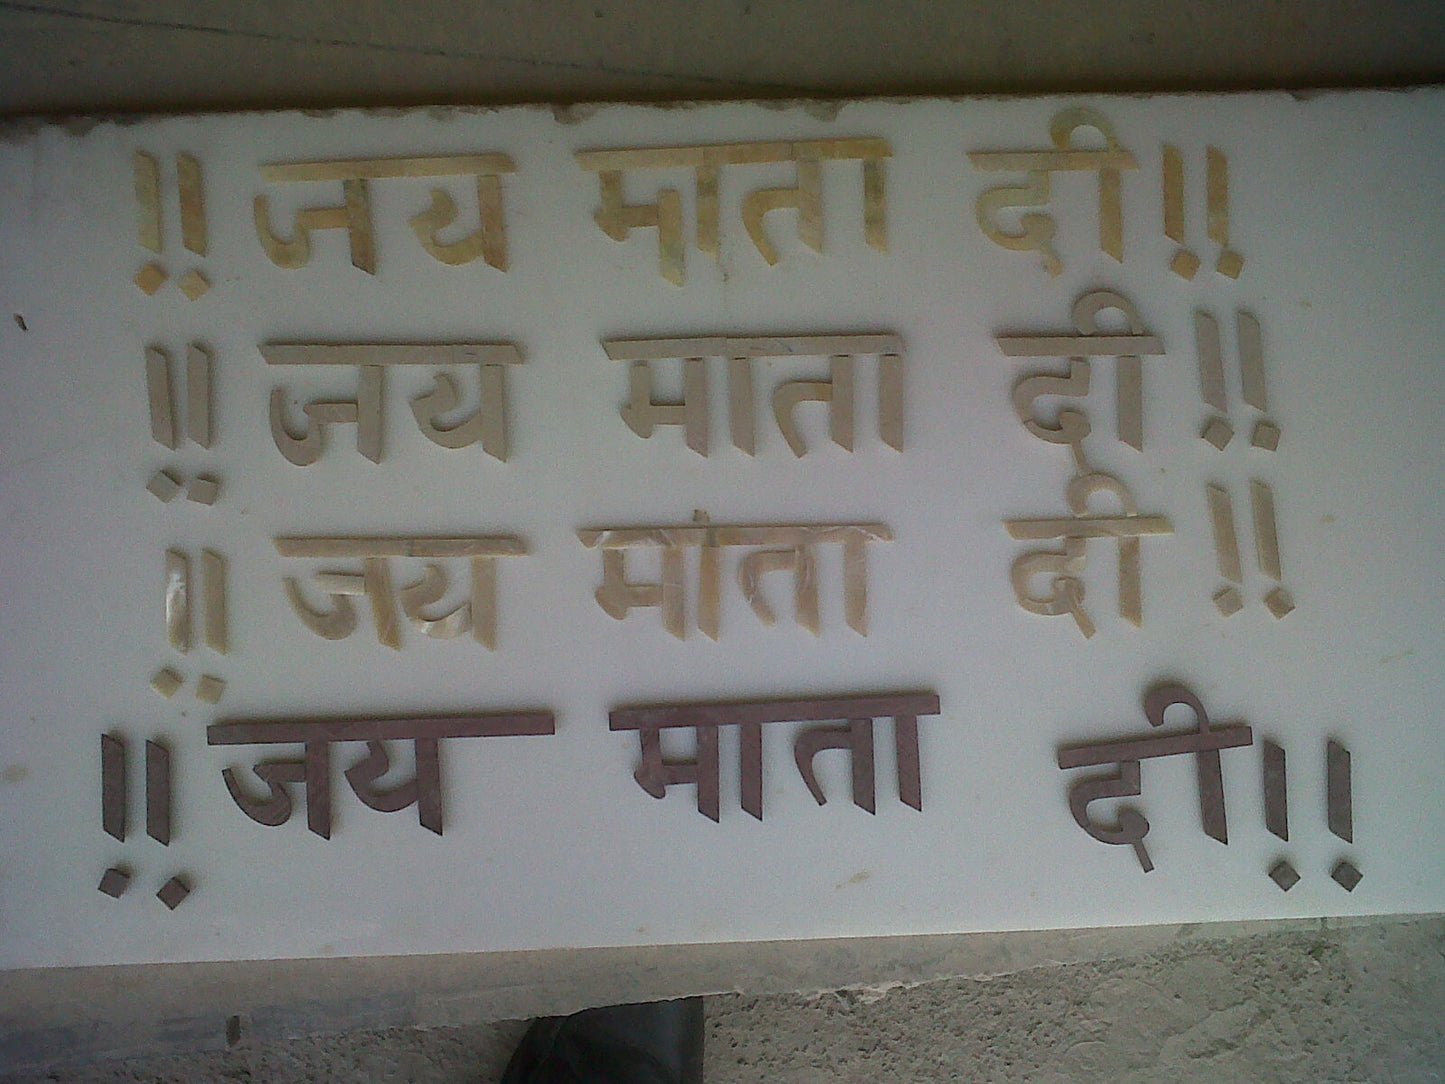 !! जय माता दी !!
!! जय माता दी !!
!! जय माता दी !!
!! जय माता दी !!